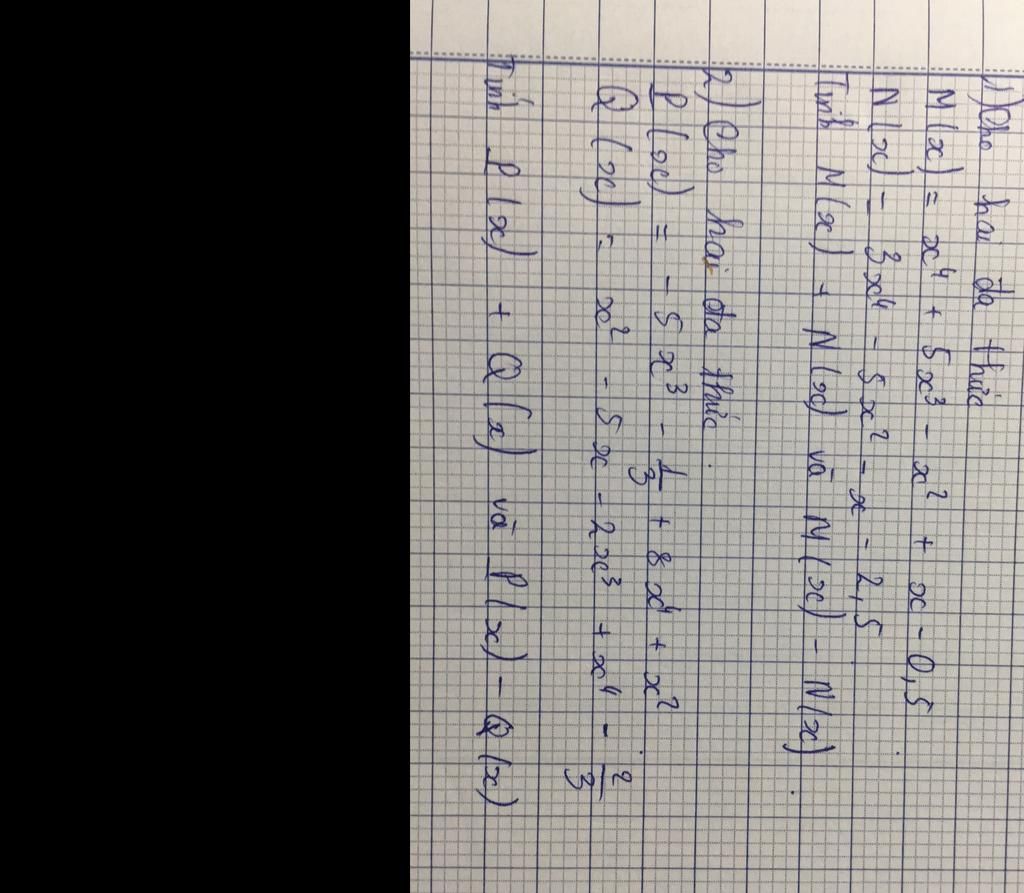 1) Cho hai đa thức
M(x) = x⁴ + 5x³ - x² + x - 0,5
N(x) = 3x⁴ - 5x² - x - 2,5
Tính M(x) + N(x) và M(x) - N(x).
2) Cho hai đa thức.
P(x) = -5x³ - 1/3 + 8x⁴ + x²
Q(x) = x² - 5x - 2x³ + x⁴ - 2/3
Tính P(x) + Q(x) và P(x) - Q(x)